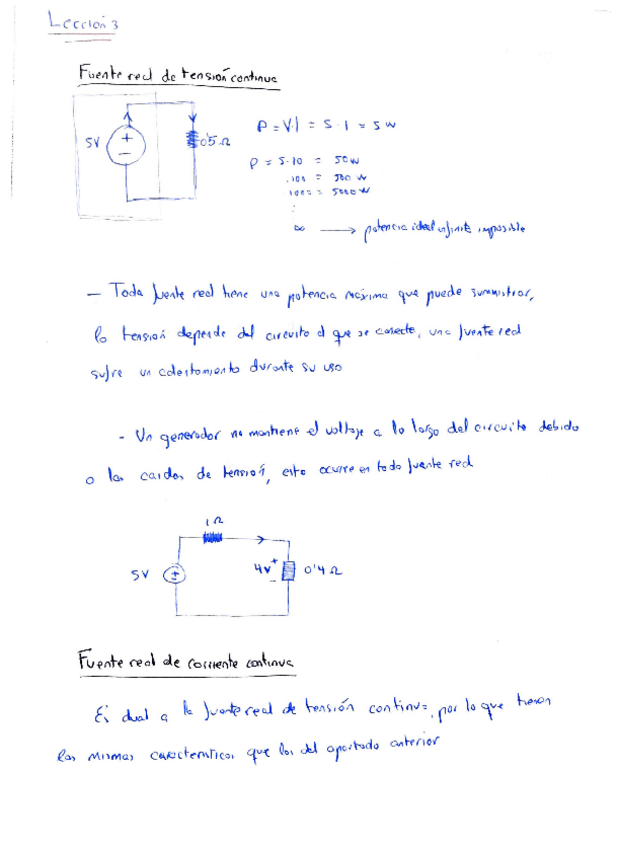 Lección 3
Fuente real de tensión continua
5V
0'5 Ω
P = V·I = 5·1 = 5 W
P = 5·10 = 50 W
.100 = 500 W
1000 = 5000 W
:
∞ → potencia ideal infinita imposible
– Toda fuente real tiene una potencia máxima que puede suministrar,
la tensión depende del circuito al que se conecte, una fuente real
sufre un calentamiento durante su uso
- Un generador no mantiene el voltaje a lo largo del circuito debido
a las caidas de tensión, esto ocurre en toda fuente real
1 Ω
5V
4V
0'4 Ω
Fuente real de corriente continua
Es dual a la fuente real de tensión continua, por lo que tienen
las mismas características que las del apartado anterior